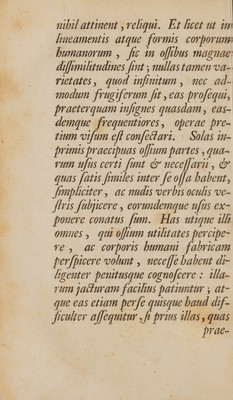 nihil attinent, reliqui. Et licet ut in
lineamentis atque formis corporum
humanorum, sic in ossibus magnae
dissimilitudines sint; nullas tamen va-
rietates, quod infinitum, nec ad-
modum frugiferum sit, eas prosequi,
praeterquam insignes quasdam, eas-
demque frequentiores, operae pre-
tium visum est consectari. Solas in-
primis praecipuas ossium partes, qua-
rum usūs certi sunt & necessarii, &
quas satis similes inter se ossa habent,
simpliciter, ac nudis verbis oculis ve-
stris subjicere, eorundemque usūs ex-
ponere conatus sum. Has utique illi
omnes, qui ossium utilitates percipe-
re, ac corporis humani fabricam
perspicere volunt, necesse habent di-
ligenter penitusque cognoscere: illa-
rum jacturam facilius patiuntur; at-
que eas etiam per se quisque haud dif-
ficulter assequitur, si prius illas, quas
prae-